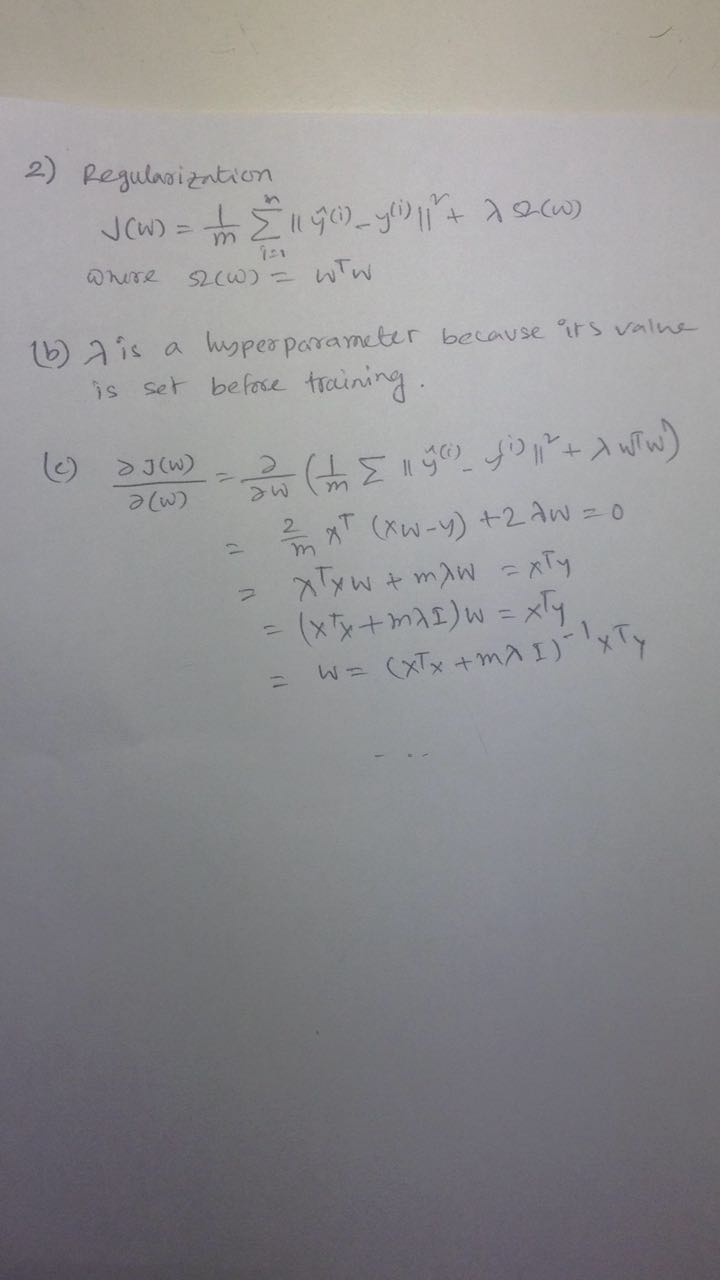 2) Regularization
J(w) = 1/m Σ_{i=1}^{n} || ŷ^(i) - y^(i) ||² + λ Ω(w)
where Ω(w) = w^T w
(b) λ is a hyperparameter because its value
is set before training.
(c) ∂J(w)/∂(w) = ∂/∂w (1/m Σ || ŷ^(i) - y^(i) ||² + λ w^T w)
= 2/m x^T (xw - y) + 2λw = 0
= x^T x w + mλw = x^T y
= (x^T x + mλI) w = x^T y
= w = (x^T x + mλ I)^-1 x^T y
- - -